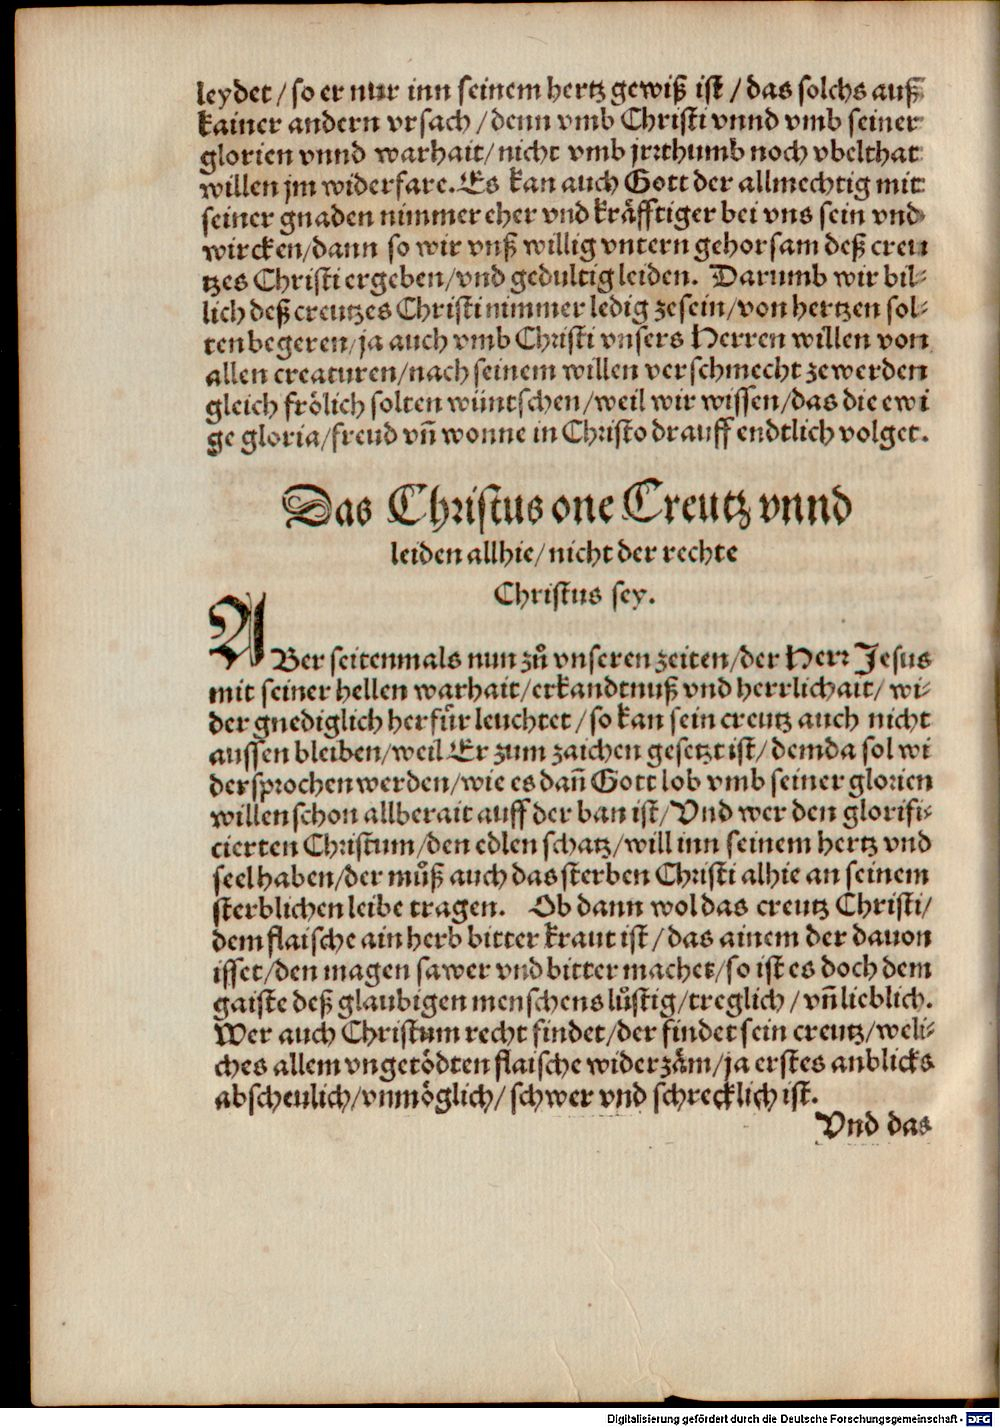 leydet / so er nur inn seinem hertz gewiß ist / das solchs auß
kainer andern vrsach / denn vmb Christi vnnd vmb seiner
glorien vnnd warhait / nicht vmb jrrthumb noch vbelthat
willen jm widerfare. Es kan auch Gott der allmechtig mit
seiner gnaden nimmer eher vnd kräfftiger bei vns sein vnd
wircken / dann so wir vnß willig vntern gehorsam deß creu
tzes Christi ergeben / vnd gedultig leiden. Darumb wir bil⸗
lich deß creutzes Christi nimmer ledig ze sein / von hertzen sol⸗
ten begeren / ja auch vmb Christi vnsers Herren willen von
allen creaturen / nach seinem willen verschmecht ze werden
gleich frölich solten wüntschen / weil wir wissen / das die ewi
ge gloria / freud vñ wonne in Christo drauff endtlich volget.
Das Christus one Creutz vnnd
leiden allhie / nicht der rechte
Christus sey.
ABer seitenmals nun zů vnseren zeiten / der Herr Jesus
mit seiner hellen warhait / erkandtnuß vnd herrlichait / wi⸗
der gnediglich herfür leuchtet / so kan sein creutz auch nicht
aussen bleiben / weil Er zum zaichen gesetzt ist / dem da sol wi
dersprochen werden / wie es dañ Gott lob vmb seiner glorien
willen schon allberait auff der ban ist / Vnd wer den glorifi⸗
cierten Christum / den edlen schatz / will inn seinem hertz vnd
seel haben / der můß auch das sterben Christi alhie an seinem
sterblichen leibe tragen. Ob dann wol das creutz Christi /
dem flaische ain herb bitter kraut ist / das ainem der dauon
isset / den magen sawer vnd bitter machet / so ist es doch dem
gaiste deß glaubigen menschens lůstig / treglich / vñ lieblich.
Wer auch Christum recht findet / der findet sein creutz / weli⸗
ches allem vngetödten flaische widerzäm / ja erstes anblicks
abscheulich / vnmöglich / schwer vnd schrecklich ist.
Vnd das
Digitalisierung gefördert durch die Deutsche Forschungsgemeinschaft - DFG